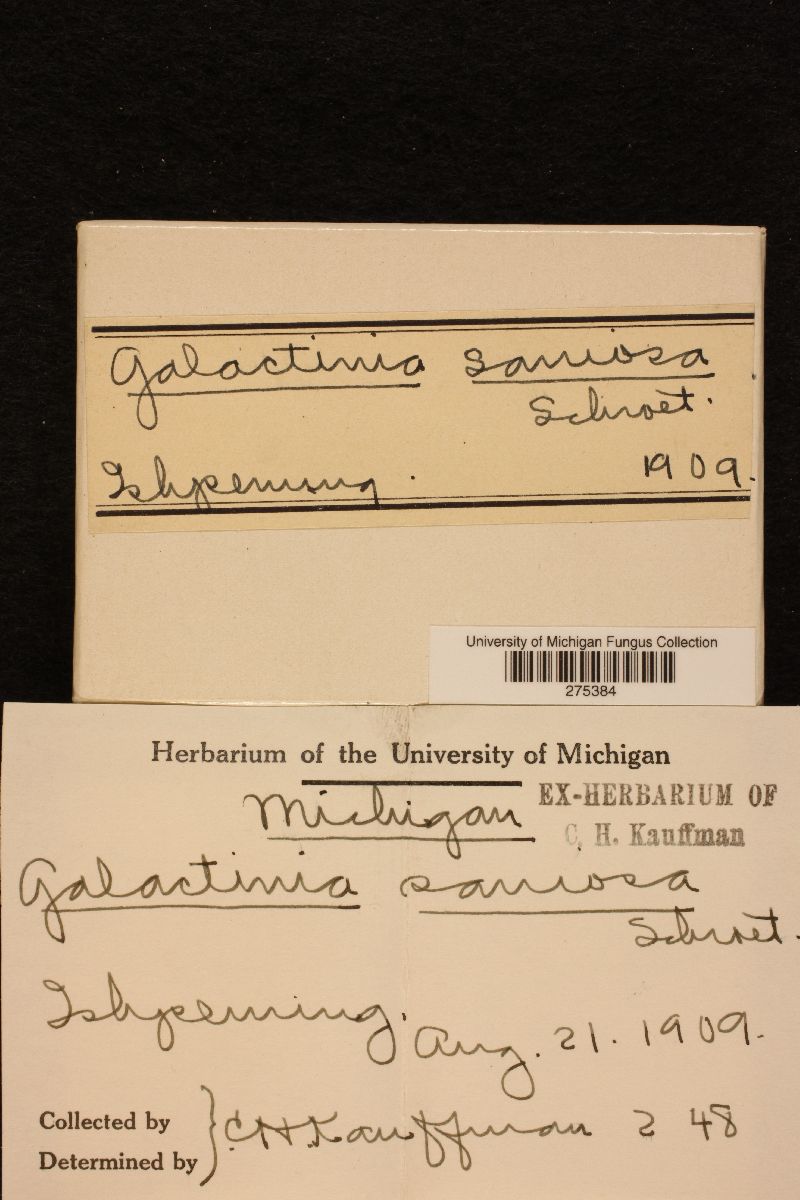 Galactinia saniosa
Schroet.
Ishpeming. 1909.
University of Michigan Fungus Collection
275384
Herbarium of the University of Michigan
Michigan
EX-HERBARIUM OF
C. H. Kauffman
Galactinia saniosa
Schroet.
Ishpeming. Aug. 21. 1909.
Collected by
Determined by } C H Kauffman 248